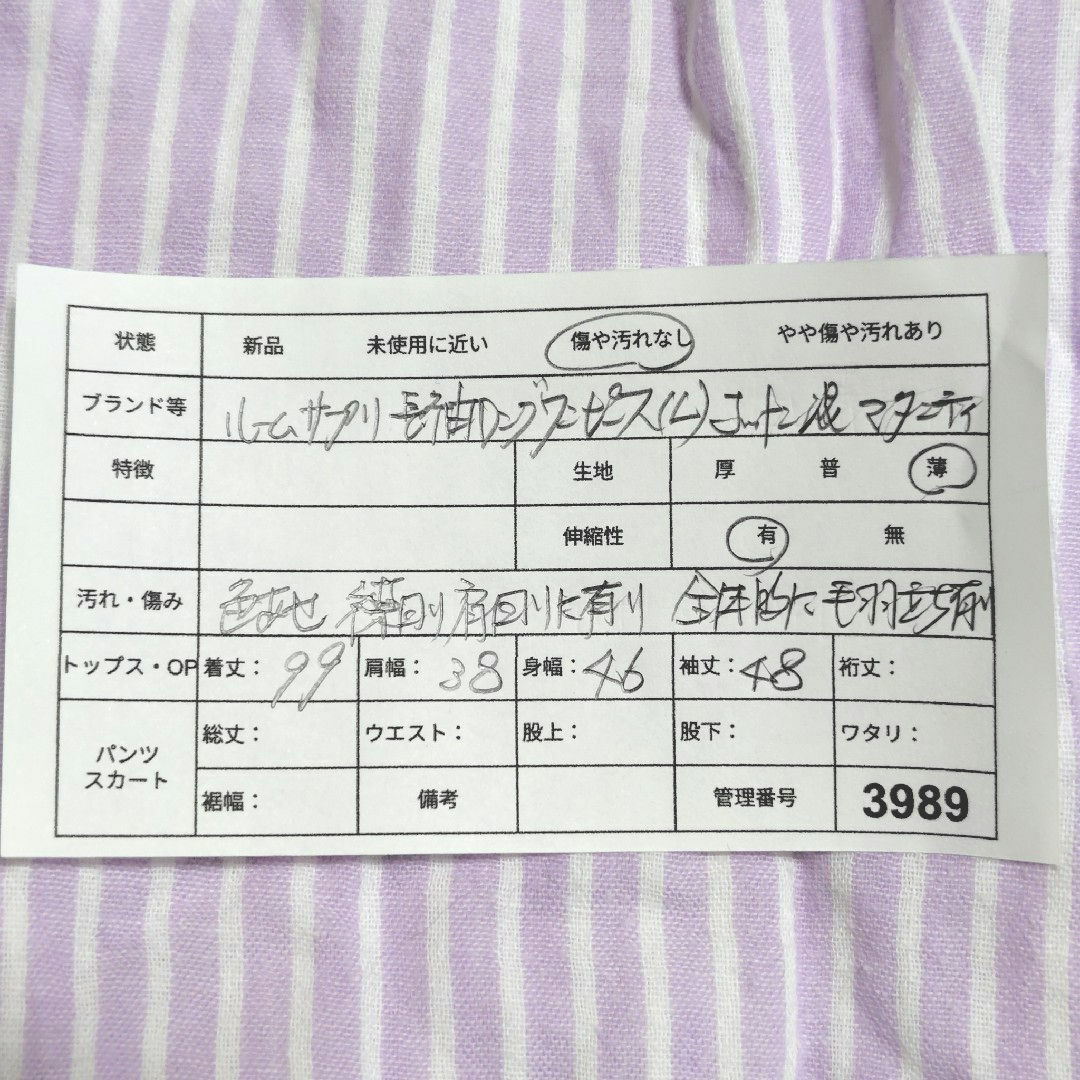 状態 新品 未使用に近い 傷や汚れなし やや傷や汚れあり
ブランド等 ルームサプリ 長袖ロングワンピース(L) コットン混 マタニティ
特徴 生地 厚 普 薄
伸縮性 有 無
汚れ・傷み 色あせ 襟回り肩回りに有り 全体的に毛羽立ち有り
トップス・OP 着丈: 99 肩幅: 38 身幅: 46 袖丈: 48 裄丈:
パンツ スカート 総丈: ウエスト: 股上: 股下: ワタリ:
裾幅: 備考 管理番号 3989